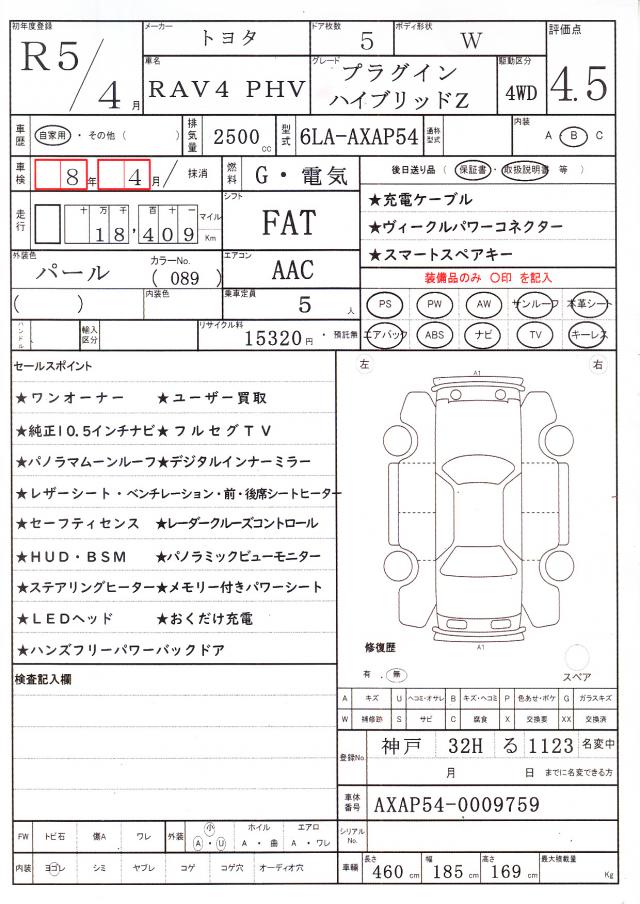 初年度登録 R5/4月 メーカー トヨタ ドア枚数 5 ボディ形状 W 評価点 4.5
車名 RAV4 PHV グレード プラグインハイブリッドZ 駆動区分 4WD
車歴 自家用・その他( ) 排気量 2500cc 型式 6LA-AXAP54 通称型式 内装 A・B C
車検 8年 4月/ 抹消 燃料 G・電気 後日送り品(保証書・取扱説明書 等)
走行 十万千百十一 18,409 マイル Km シフト FAT
★充電ケーブル
★ヴィークルパワーコネクター
★スマートスペアキー
外装色 パール カラーNo. (089) エアコン AAC 装備品のみ 〇印 を記入
( ) 内装色 乗車定員 5人
PS PW AW サンルーフ 本革シート
ハンドル 輸入区分 リサイクル料 15320円・預託無
エアバック ABS ナビ TV キーレス
セールスポイント
★ワンオーナー ★ユーザー買取
★純正10.5インチナビ★フルセグTV
★パノラマムーンルーフ★デジタルインナーミラー
★レザーシート・ベンチレーション・前・後席シートヒーター
★セーフティセンス ★レーダークルーズコントロール
★HUD・BSM ★パノラミックビューモニター
★ステアリングヒーター★メモリー付きパワーシート
★LEDヘッド ★おくだけ充電
★ハンズフリーパワーバックドア
左 A1 右
A1
修復歴
有 . 無
スペア
検査記入欄
A キズ U ヘコミ・オサレ B キズ・ヘコミ P 色あせ・ボケ G ガラスキズ
W 補修跡 S サビ C 腐食 X 交換要 XX 交換済
登録No. 神戸 32H る 1123 名変中
月 日 までに名変できる方
車体番号 AXAP54-0009759
FW トビ石 傷A ワレ 外装 小 A・U ホイル A ・ 曲 エアロ A ・ ワレ
シリアルNo.
内装 ヨゴレ シミ ヤブレ コゲ コゲ穴 オーディオ穴
車輌 長さ 460cm 幅 185cm 高さ 169cm 最大積載量 Kg